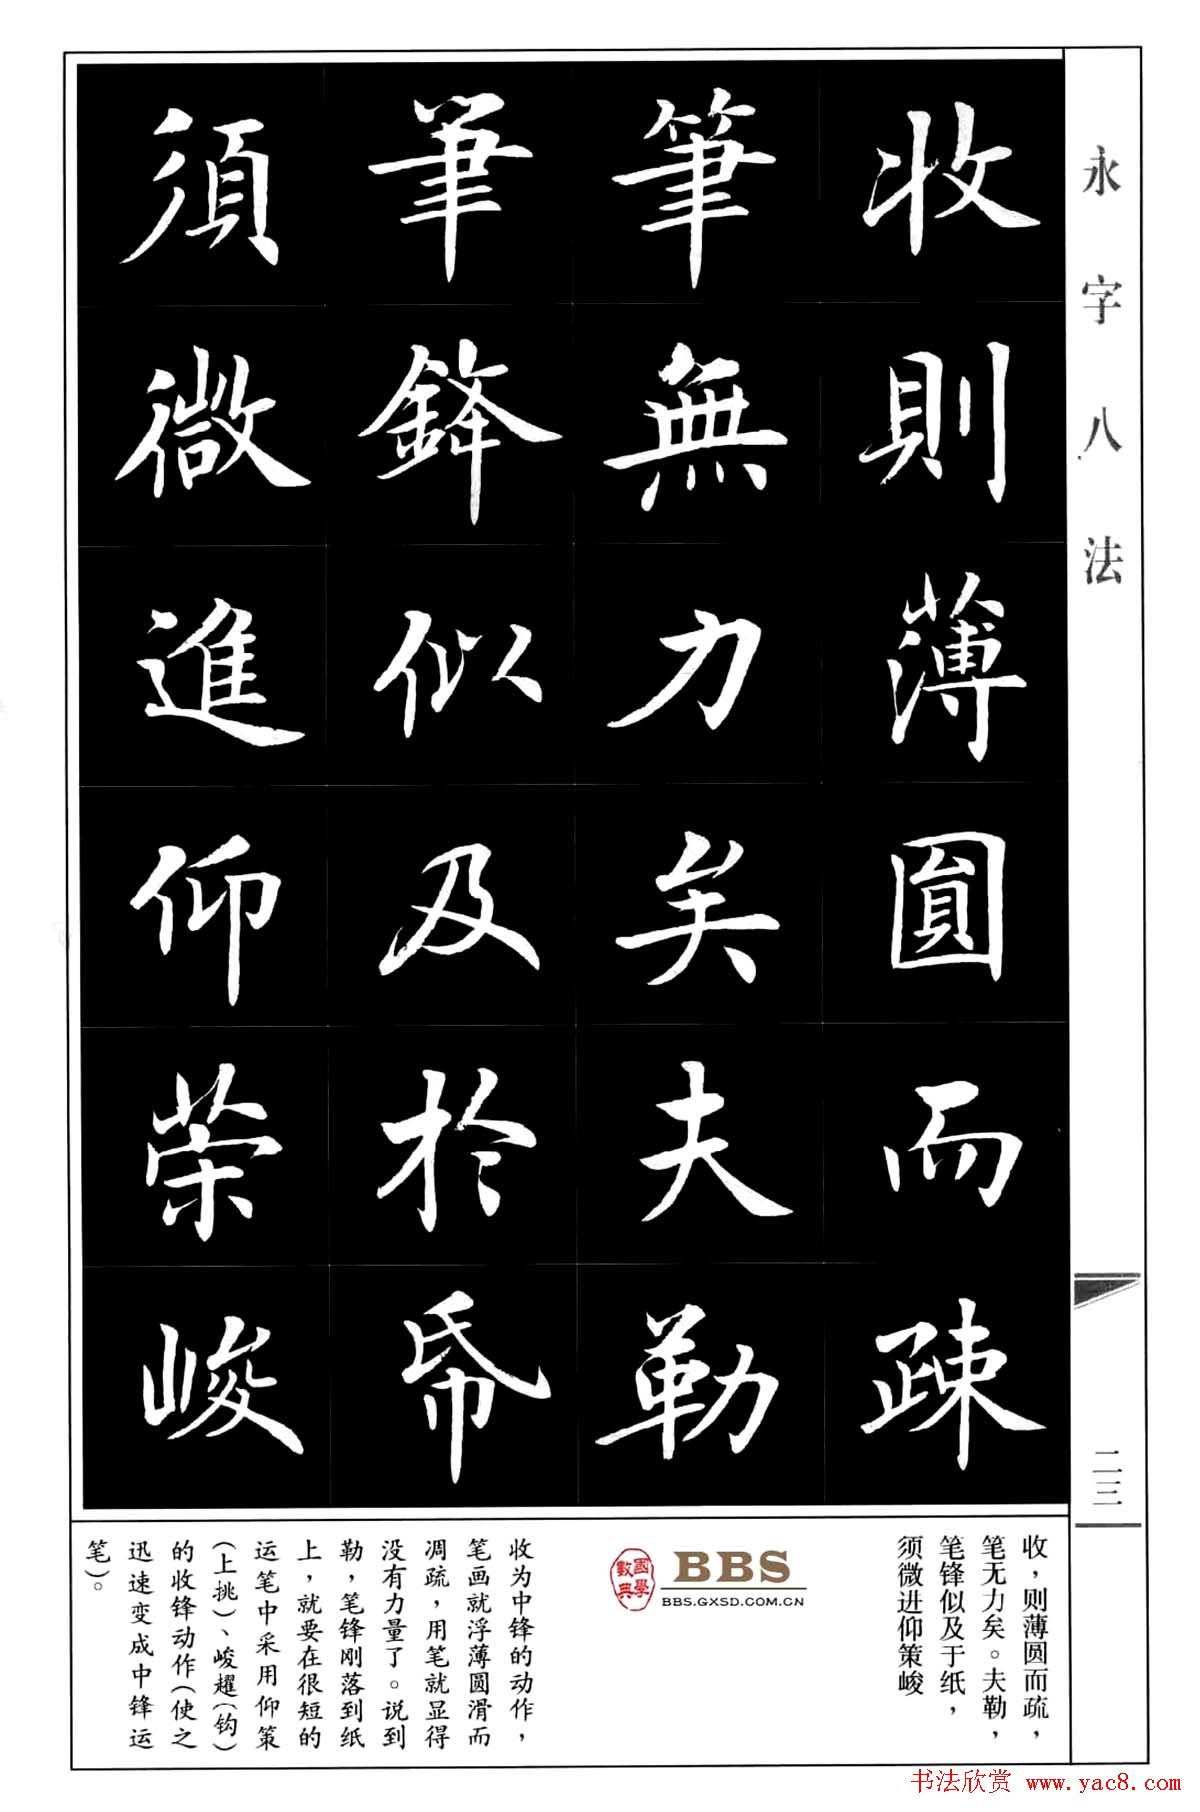 永字八法
二三
收則薄圓而疎
筆無力矣夫勒
筆鋒似及於帋
須微進仰䇿峻
收，则薄圆而疏，
笔无力矣。夫勒，
笔锋似及于纸，
须微进仰策峻
國學數典
BBS
BBS.GXSD.COM.CN
收为中锋的动作，
笔画就浮薄圆滑而
凋疏，用笔就显得
没有力量了。说到
勒，笔锋刚落到纸
上，就要在很短的
运笔中采用仰策
（上挑）、峻趯（钩）
的收锋动作（使之
迅速变成中锋运
笔）。
书法欣赏 www.yac8.com